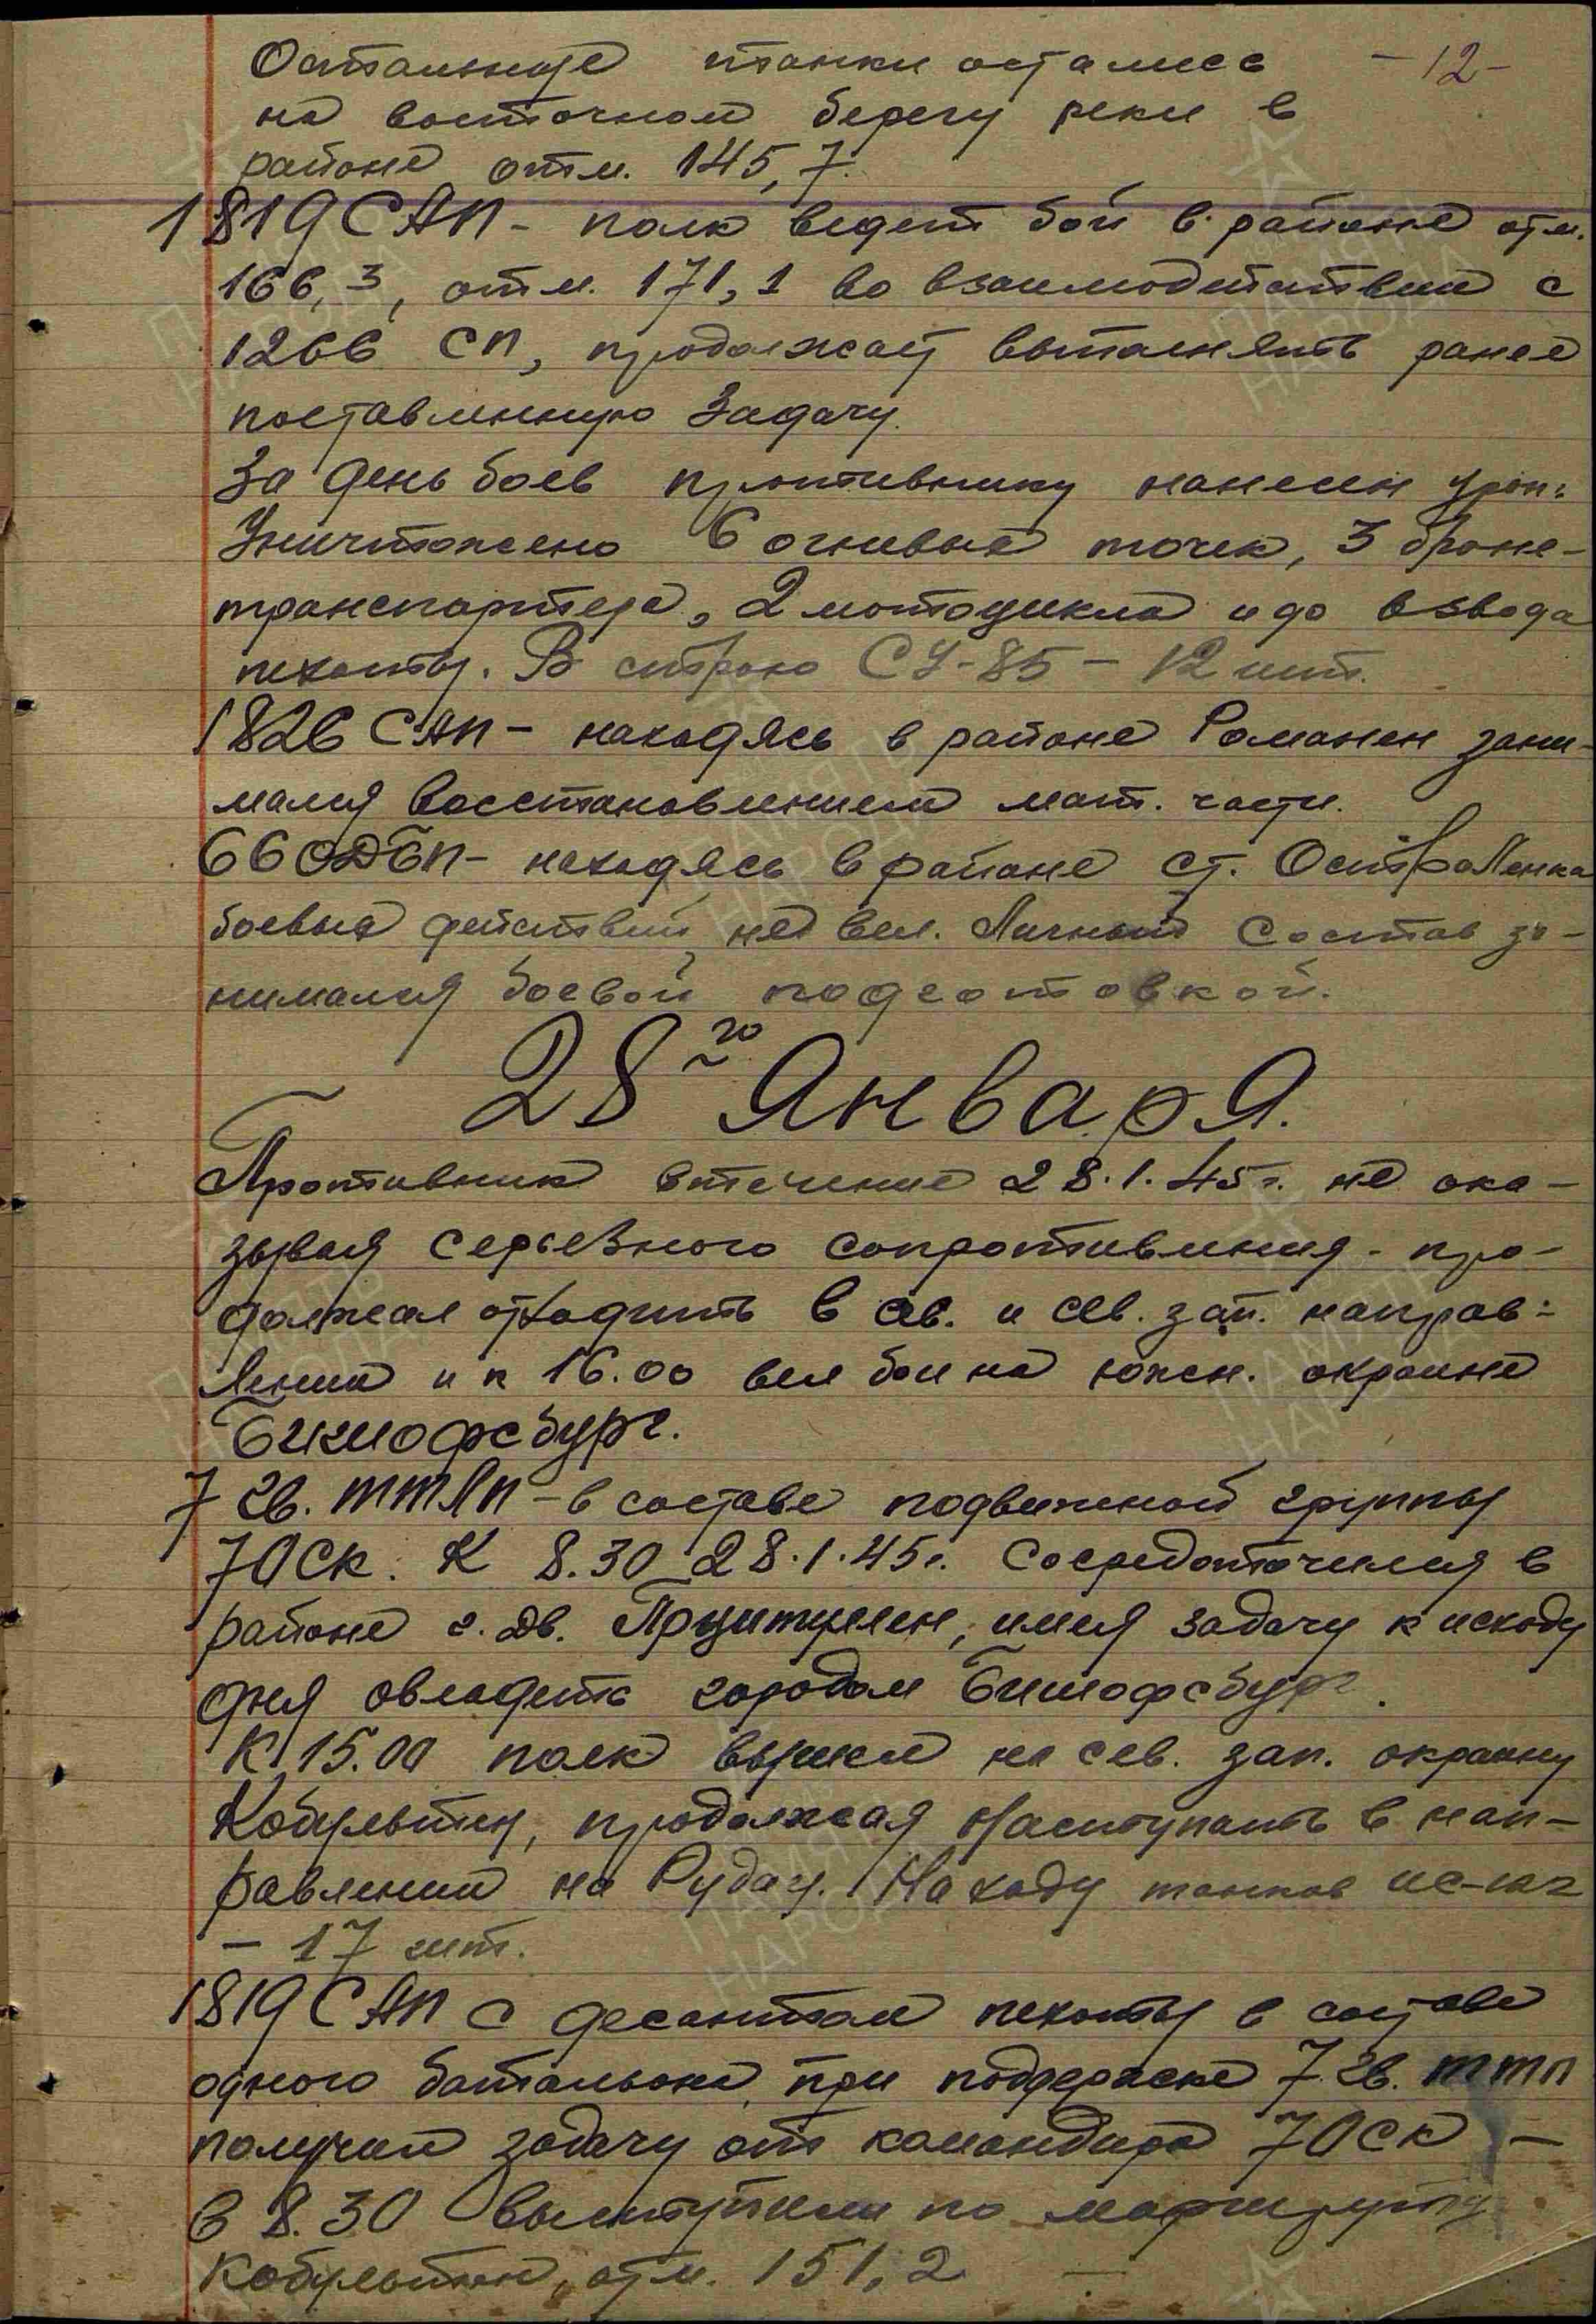 Остальные танки остались -12-
на восточном берегу реки в
районе отм. 145,7.
1819 САП - полк ведет бой в районе отм.
166,3, отм. 171,1 во взаимодействии с
1266 СП, продолжает выполнять ранее
поставленную задачу.
За день боев противнику нанесен урон:
Уничтожено 6 огневых точек, 3 броне-
транспортера, 2 мотоцикла и до взвода
пехоты. В строю СУ-85 - 12 шт.
1826 САП - находясь в районе Романен зани-
мался восстановлением мат. части.
66 ОДБП - находясь в районе ст. Остроленка
боевых действий не вел. Личный состав за-
нимался боевой подготовкой.
28го Января.
Противник втечение 28.1.45г. не ока-
зывая серьезного сопротивления - про-
должал отходить в сев. и сев. зап. направ-
лении и к 16.00 вел бои на южн. окраине
Бишофсбург.
7 гв. ттпп - в составе подвижной группы
70СК. К 8.30 28.1.45г. сосредоточился в
районе г. дв. имея задачу к исходу
дня овладеть городом Бишофсбург.
К 15.00 полк вышел на сев. зап. окраину
Кобультен, продолжая наступать в нап-
равлении на Рудау. На ходу танков ис-122
- 17 шт.
1819 САП с десантом пехоты в составе
одного батальона при поддержке 7 гв. ттп
получил задачу от командира 70СК -
в 8.30 выступили по маршруту
Кобультен, отм. 151,2 -
ПАМЯТЬ НАРОДА